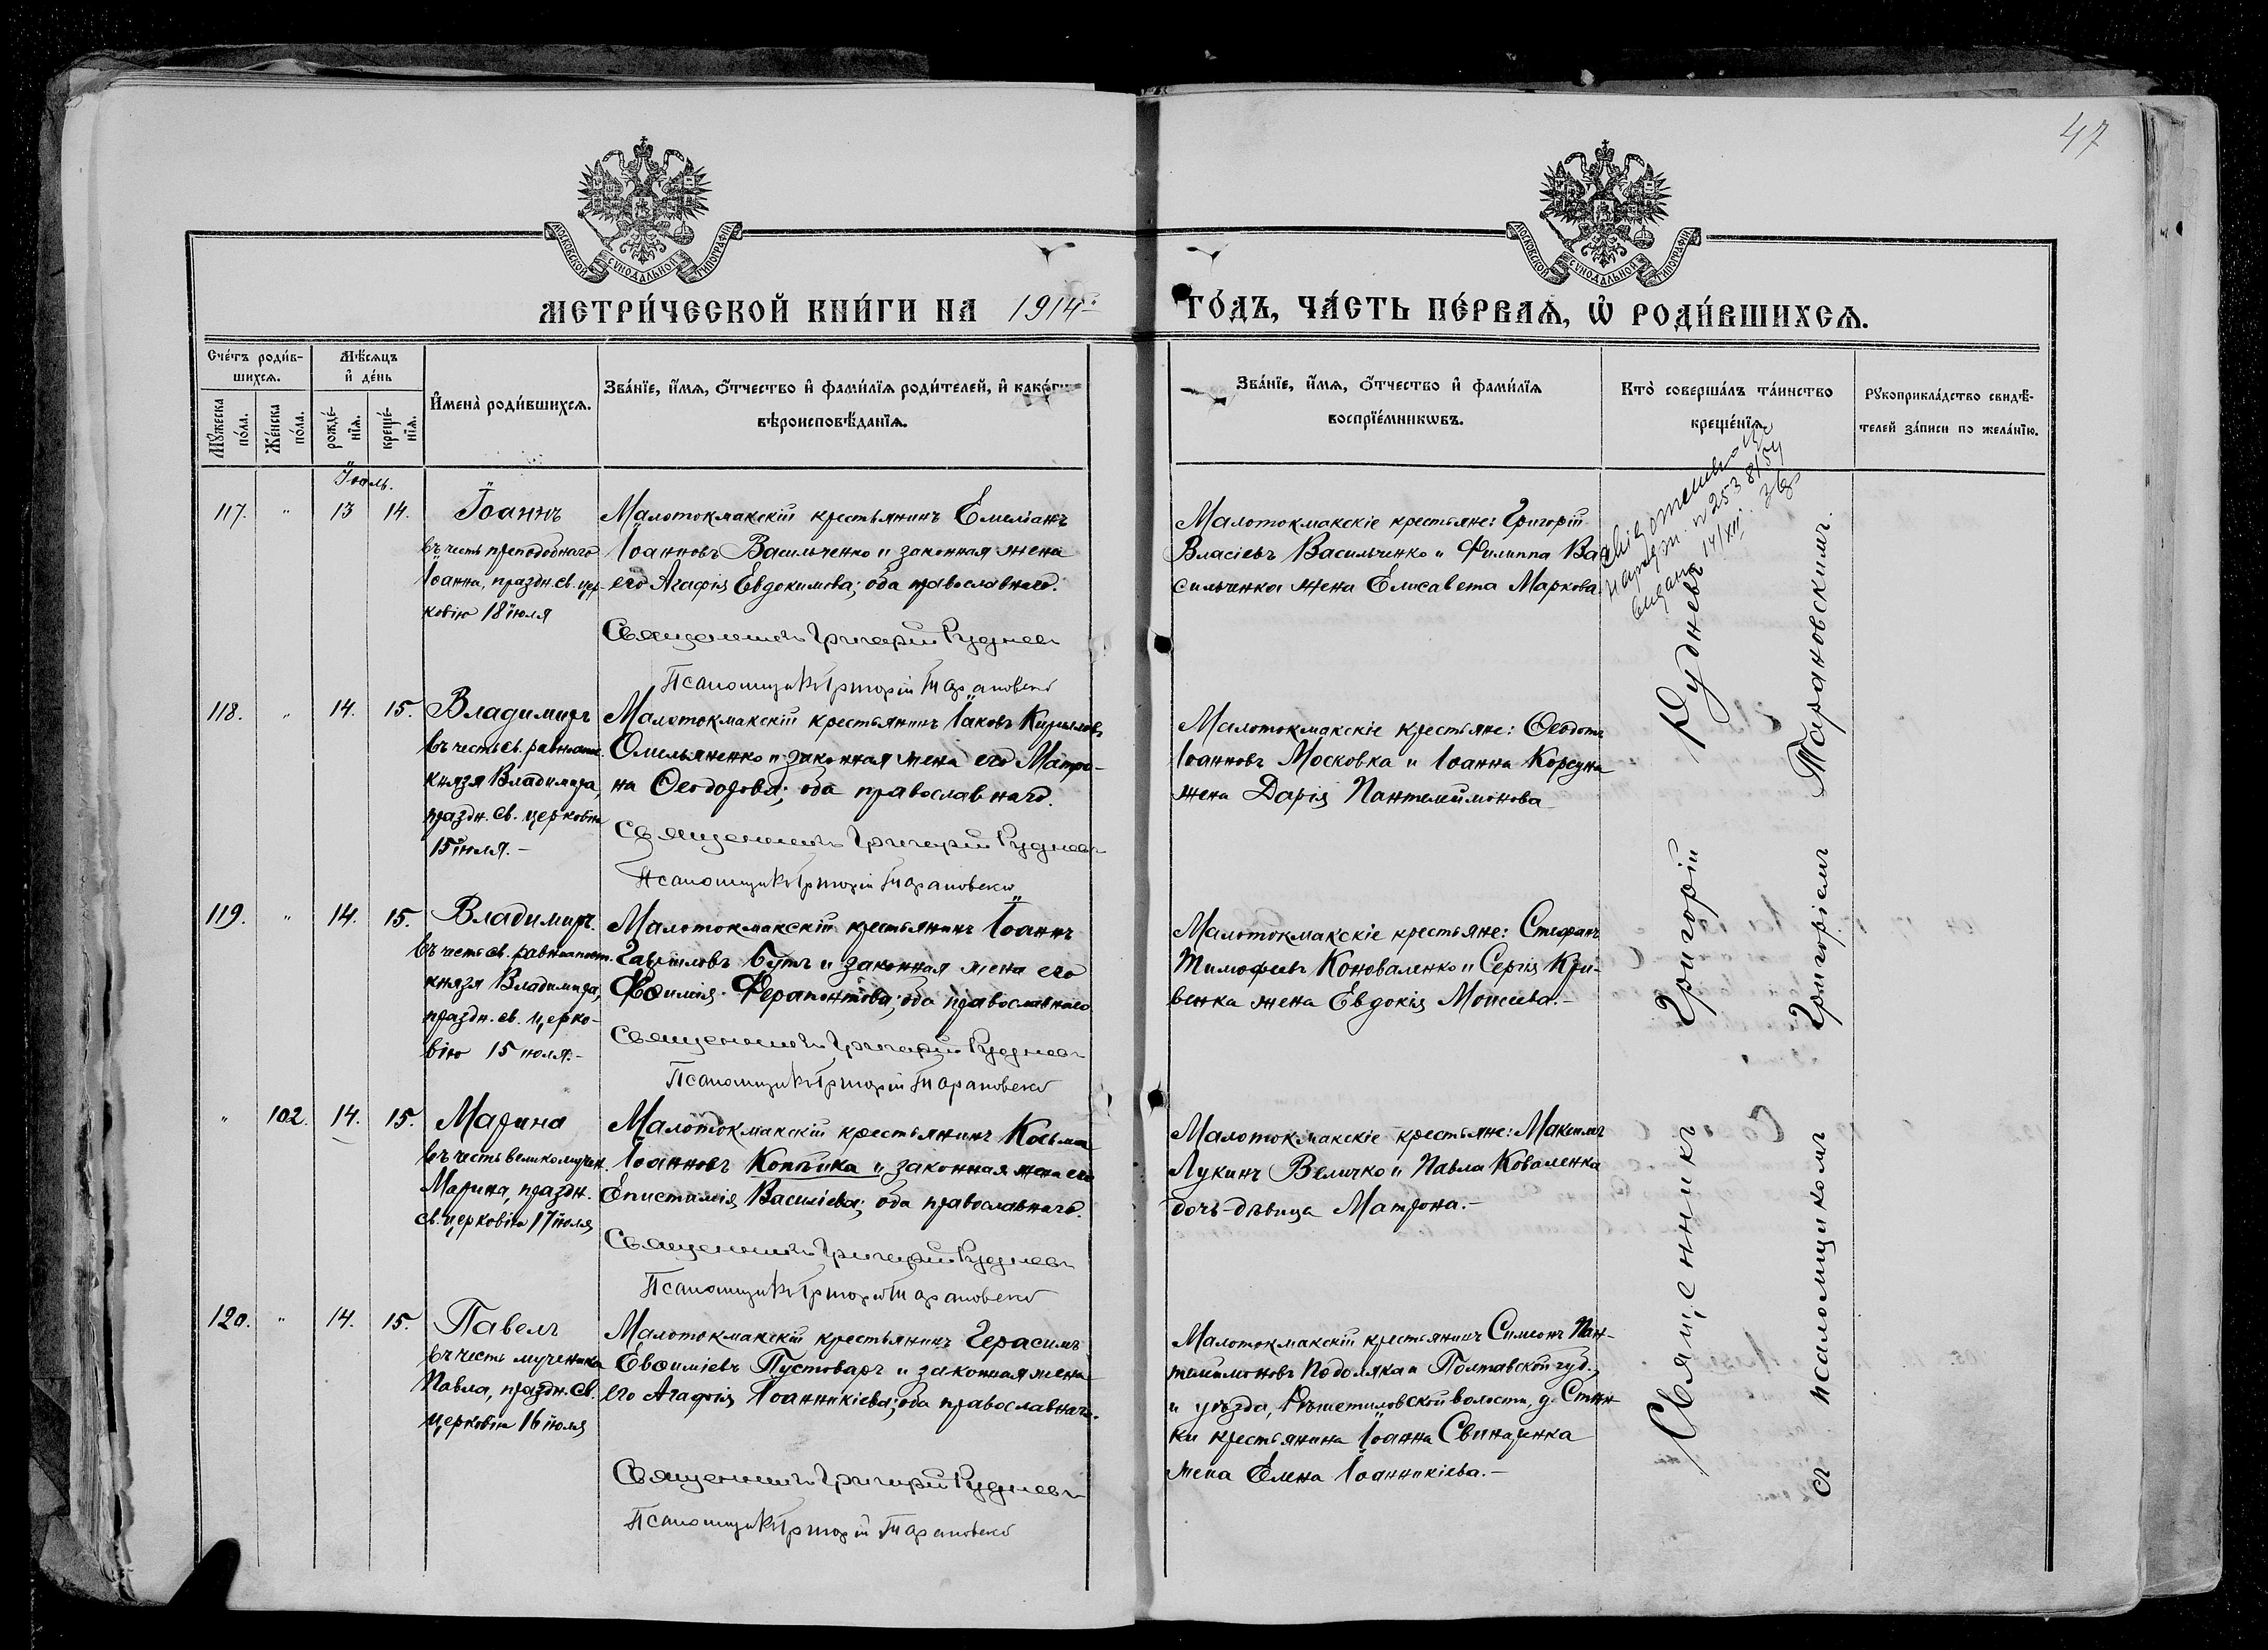 47
МОСКОВСКОЙ СѴНОДАЛЬНОЙ ТИПОГРАФІИ
МОСКОВСКОЙ СѴНОДАЛЬНОЙ ТИПОГРАФІИ
МЕТРИ́ЧЕСКОЙ КНИ́ГИ НА 1914 ГО́ДЪ, ЧА́СТЬ ПЕ́РВАѦ, Ѽ РОДИ́ВШИХСѦ.
Сче́тъ роди́в-
шихсѧ.
Мѣ́сѧцъ
и҆ де́нь
Мꙋ́жеска
по́ла.
Же́нска
по́ла.
рожде́-
нїѧ.
креще́-
нїѧ.
И҆мена̀ роди́вшихсѧ.
Зва́нїе, и҆́мѧ, ѻ҆́тчество и҆ фами́лїѧ роди́телей, и҆ како́гѡ
вѣроисповѣ́данїѧ.
Зва́нїе, и҆́мѧ, ѻ҆́тчество и҆ фами́лїѧ
воспрїе́мникѡвъ.
Кто̀ соверша́лъ та́инство
креще́нїѧ.
Рꙋкоприкла́дство свидѣ́-
телей за́писи по жела́нїю.
Іюль.
117. " 13 14. Іоаннъ
въ честь преподобнаго
Іоанна, праздн. св. цер-
ковію 18 іюля
Малотокмакскій крестьянинъ Емеліанъ
Іоанновъ Васильченко и законная жена
его Агафія Евдокимова; оба православнаго.
Священникъ Григорій Рудневъ
Псаломщикъ Григорій Тарановскій
Малотокмакскіе крестьяне: Григорій
Власіевъ Васильченко и Филиппа Ва-
сильченка жена Елисавета Маркова.
118. " 14. 15. Владимиръ
въ честь св. равноапост.
князя Владимира,
праздн. св. церковію
15 іюля.-
Малотокмакскій крестьянинъ Іаковъ Кирилловъ
Омельяненко и законная жена его Матро-
на Ѳеодорова; оба православнаго.
Священникъ Григорій Рудневъ
Псаломщикъ Григорій Тарановскій
Малотокмакскіе крестьяне: Ѳеодотъ
Іоанновъ Московка и Іоанна Корсуна
жена Дарія Пантелеимонова
119. " 14. 15. Владимиръ.
въ честь св. равноапост.
князя Владимира,
праздн. св. церко-
вію 15 іюля.-
Малотокмакскій крестьянинъ Іоаннъ
Гавріиловъ Бутъ и законная жена его
Ферапонтова; оба православнаго
Священникъ Григорій Рудневъ
Псаломщикъ Григорій Тарановскій
Малотокмакскіе крестьяне: Стефанъ
Тимофеевъ Коноваленко и Сергія Кри-
венка жена Евдокія Моисеева.-
" 102. 14. 15. Марина
въ честь великомучен.
Марины, праздн.
св. церковію 17 іюля
Малотокмакскій крестьянинъ Косьма
Іоанновъ Коппика и законная жена его
Епистимія Василіева; оба православнаго.
Священникъ Григорій Рудневъ
Псаломщикъ Григорій Тарановскій
Малотокмакскіе крестьяне: Максимъ
Лукинъ Величко и Павла Коваленка
дочь-дѣвица Матрона.-
120. " 14. 15. Павелъ
въ честь мученика
Павла, праздн. св.
церковію 16 іюля
Малотокмакскій крестьянинъ Герасимъ
Евѳиміевъ Пустоваръ и законная жена
его Агафія Іоанникіева; оба православнаго.
Священникъ Григорій Рудневъ
Псаломщикъ Григорій Тарановскій
Малотокмакскій крестьянинъ Симеонъ Пан-
телеимоновъ Подоляка и Полтавской губ.,
и уѣзда, Рѣшетиловской волости, д.
крестьянина Іоанна Свинаренка
жена Елена Іоанникіева.-
Священникъ Григорій Рудневъ
съ псаломщикомъ Григоріемъ Тарановскимъ.